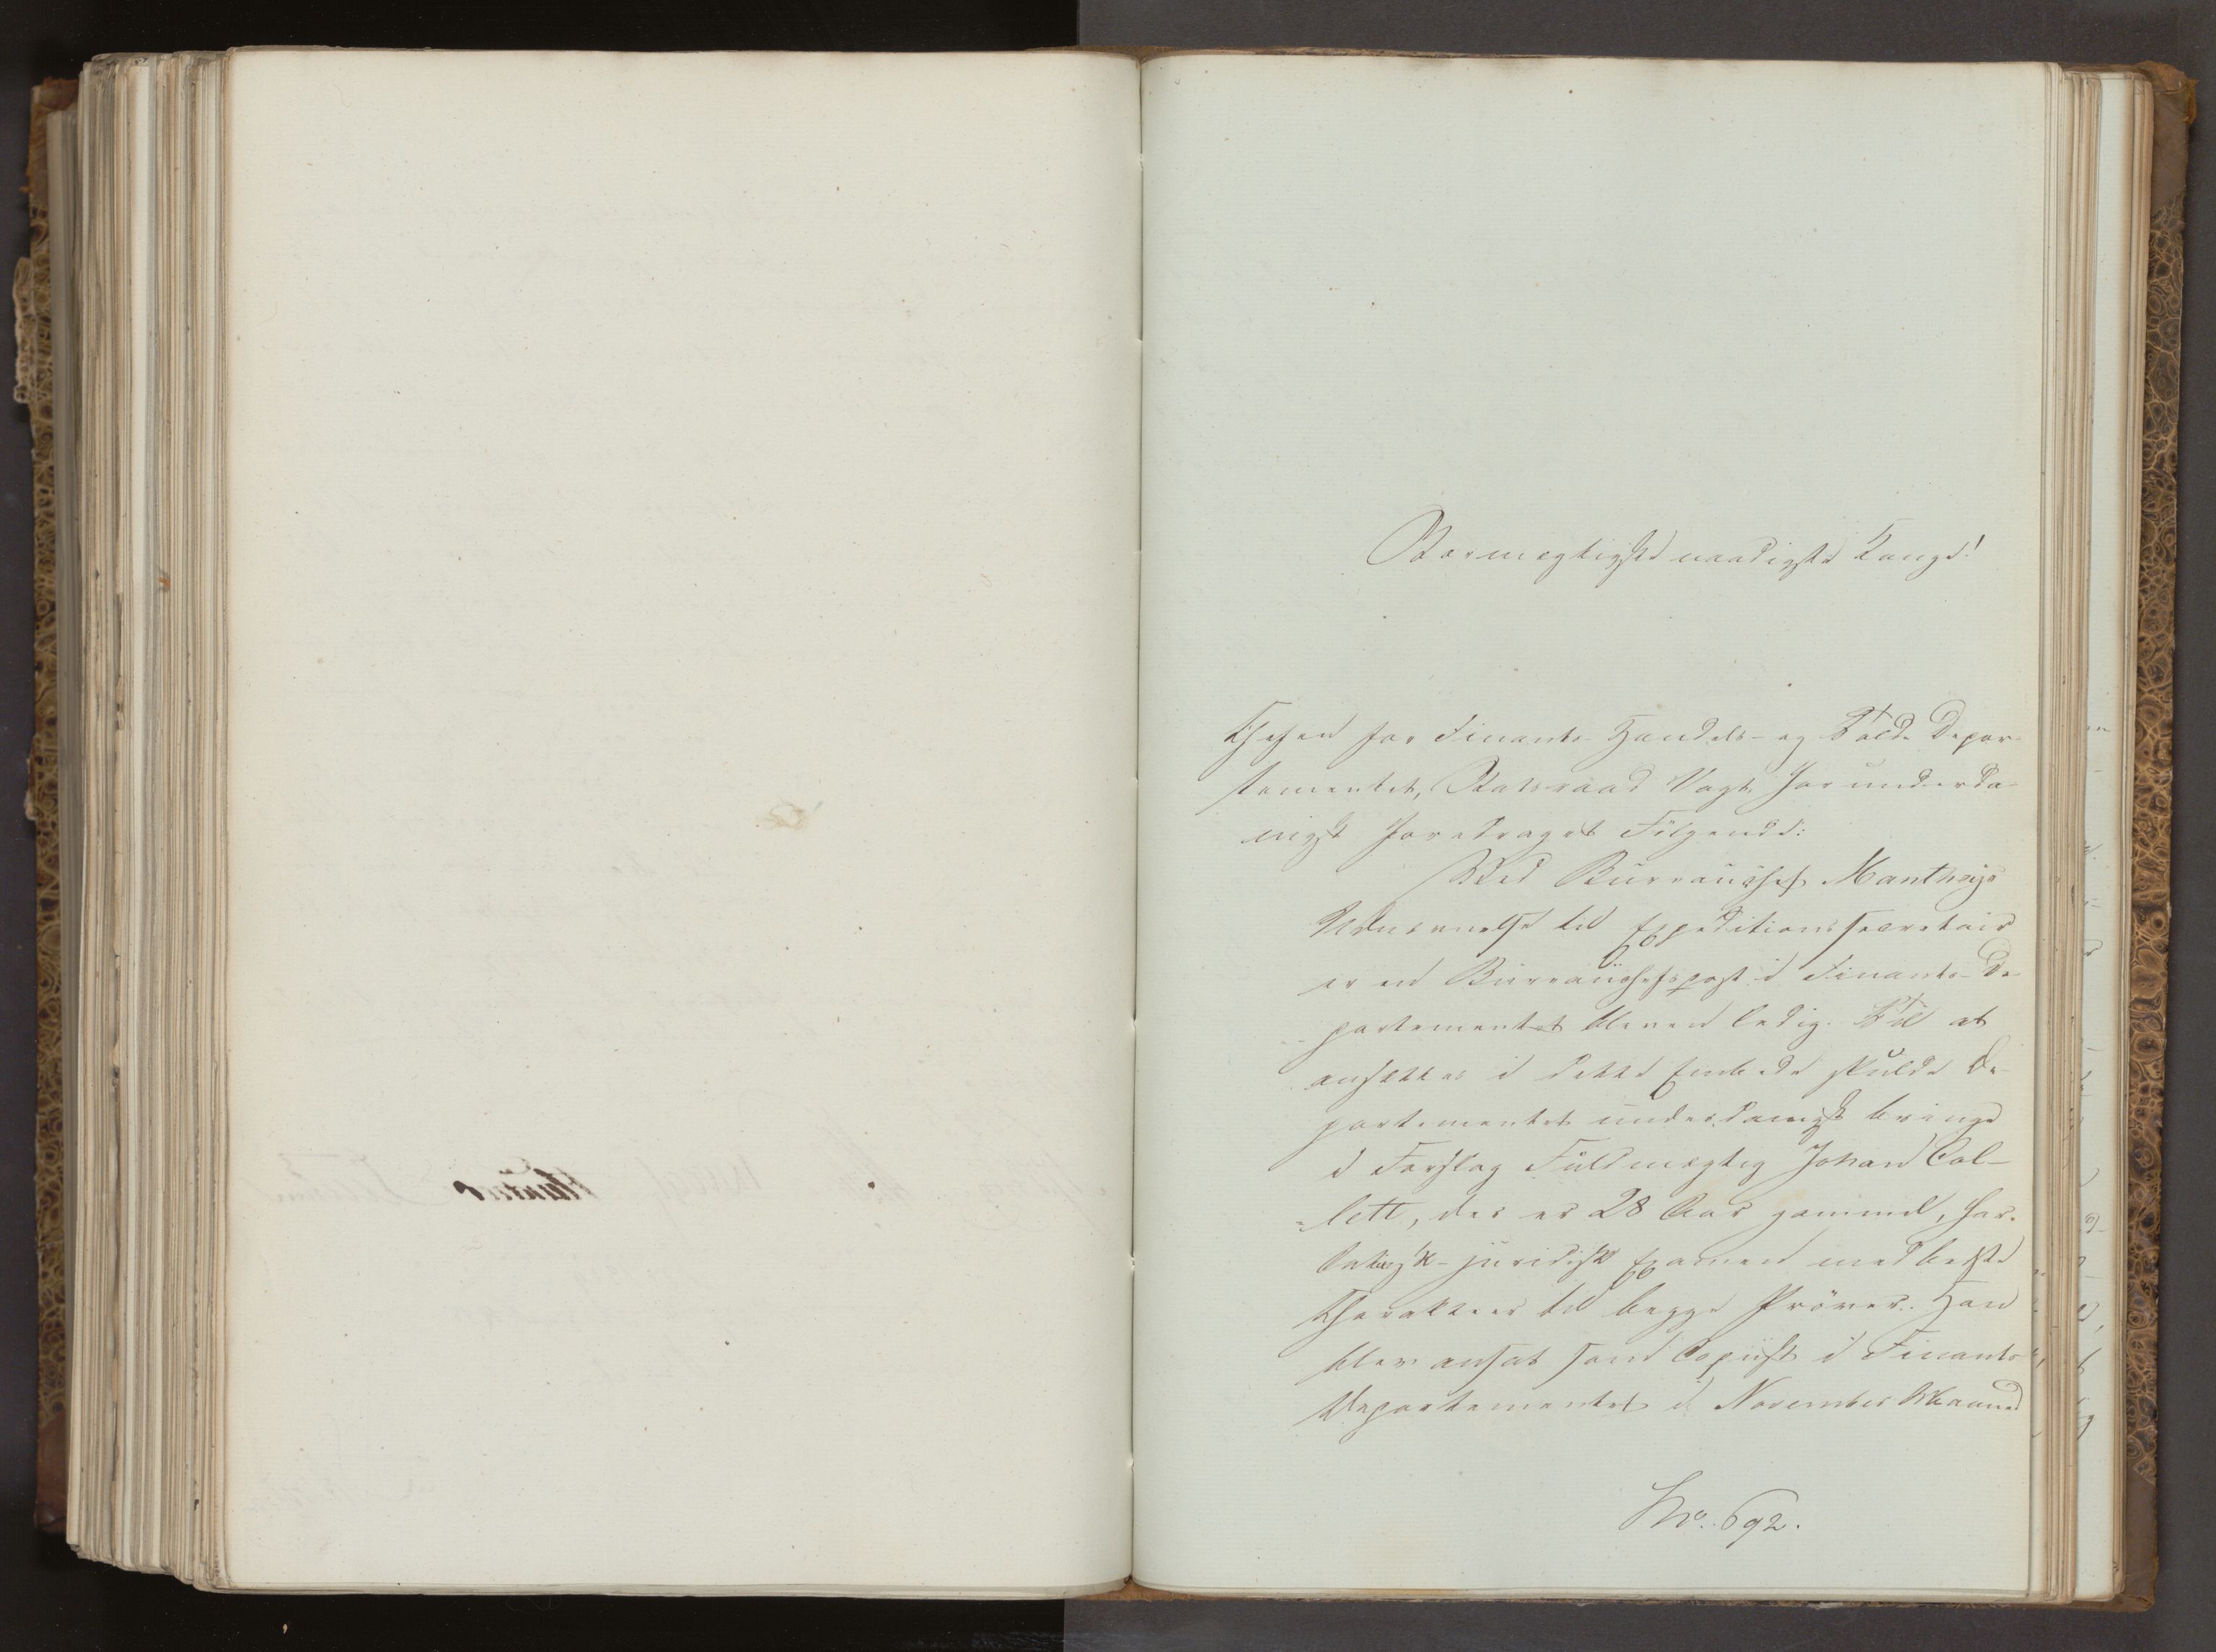 Stormægtigste naadigste Konge!
Chefen for Finants- Handels- og Told-Depar-
tementet, Statsraad Vogt har underda-
nigst foredraget Følgende:
Ved Bureauchef Mantheys
Udnævnelse til Expeditionssecretair
er en Bureauchefspost i Finants-De-
partementet bleven ledig. Til at
ansættes i dette Embede skulde De-
partementet underdanigst bringe
i Forslag Fuldmægtig Johan Col-
=lett, der er 28 Aar gammel, har
juridisk Examen med bedste
Charakteer til begge Prøver. Han
blev ansat som Copiist i Finants
Departementet i November Maaned
No. 692.